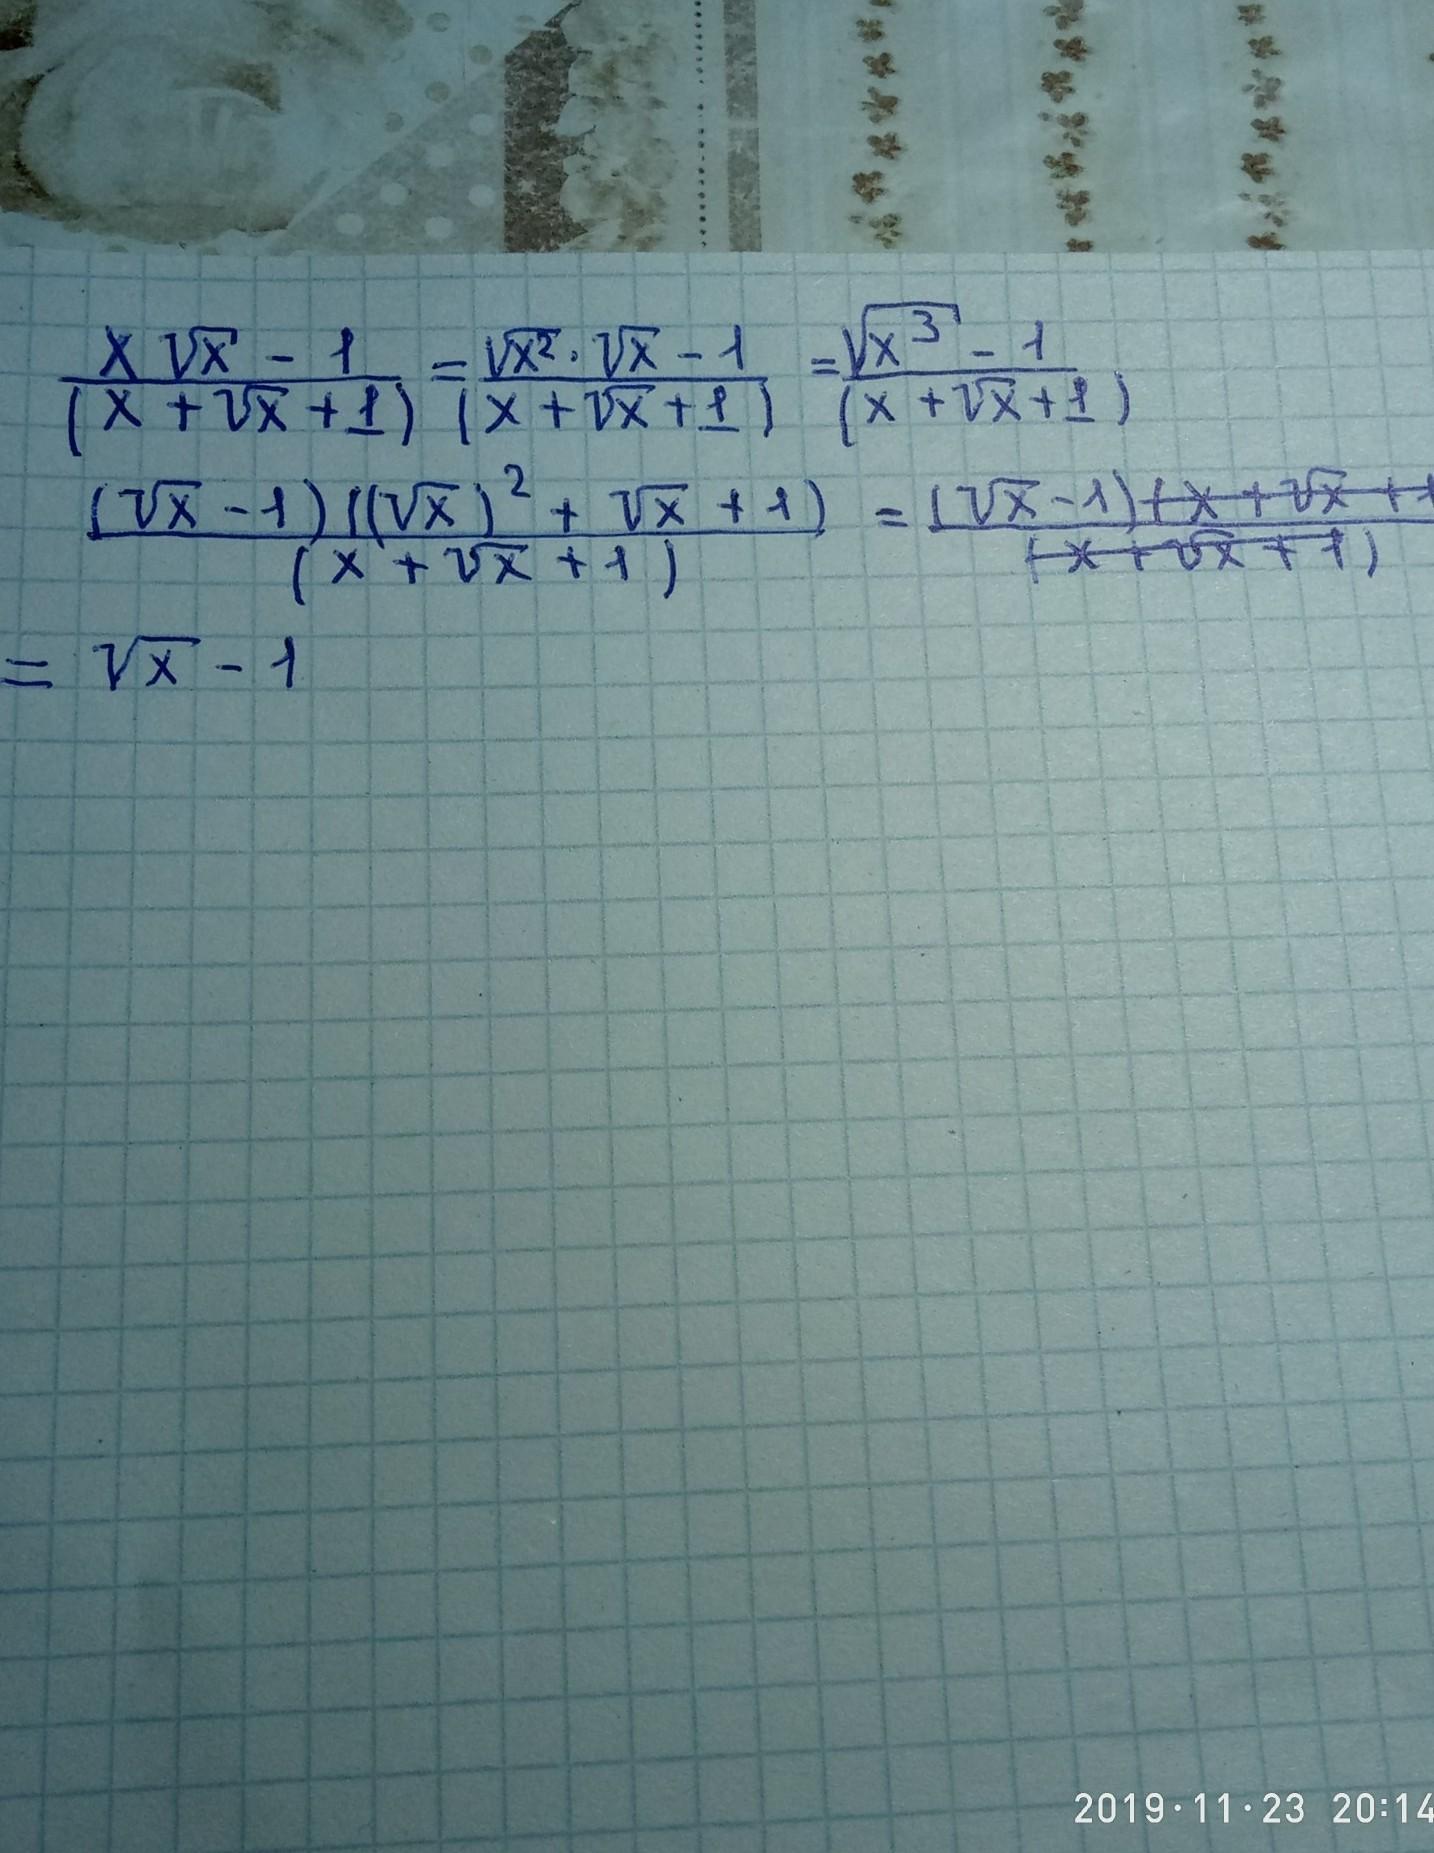 x√x - 1 / (x + √x + 1) = √x² · √x - 1 / (x + √x + 1) = √x³ - 1 / (x + √x + 1)
(√x - 1)((√x)² + √x + 1) / (x + √x + 1) = (√x - 1)(x + √x + 1 / (x + √x + 1)
= √x - 1
2019·11·23 20:14